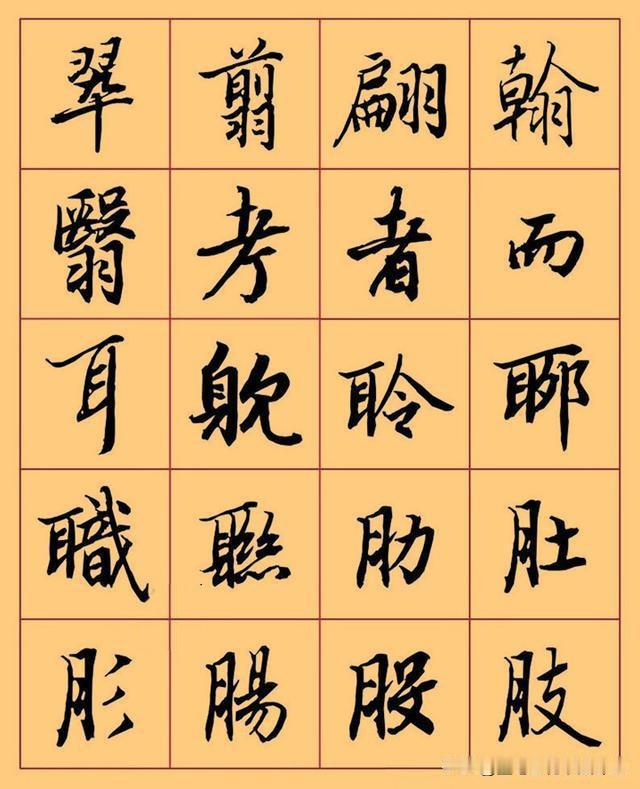 翠翦翩翰
翳考者而
耳耽聆聊
職聯肋肚
肜腸股肢